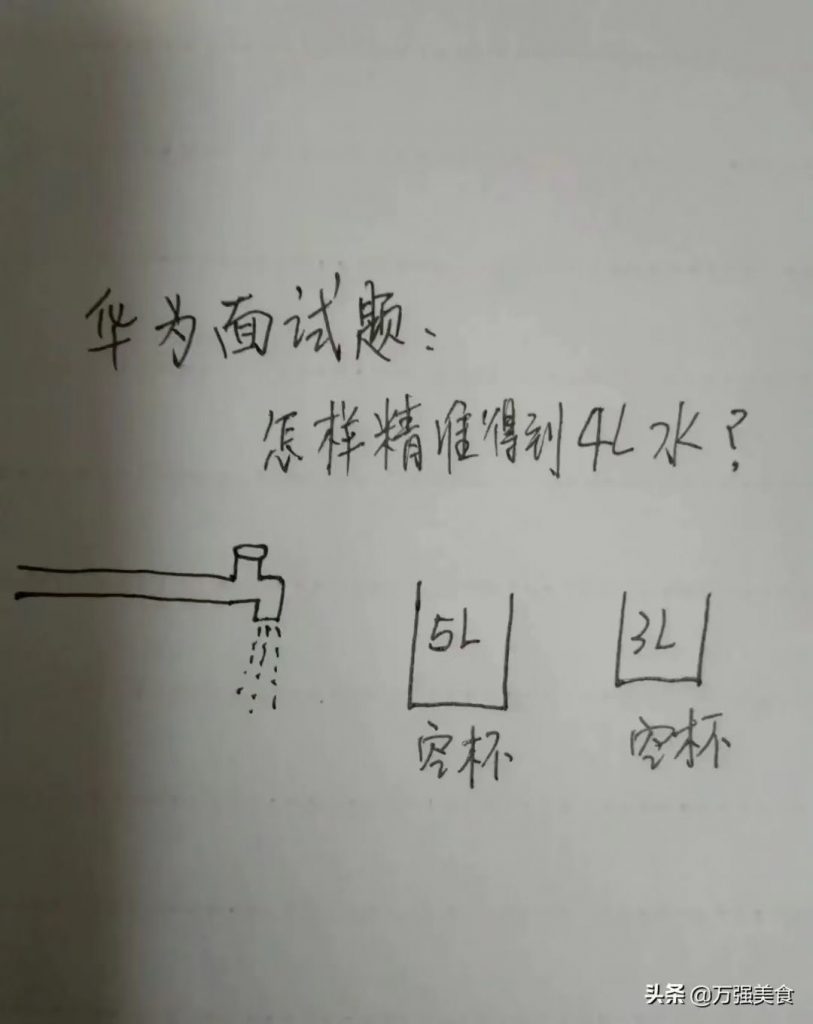 华为面试题:
怎样精准得到4L水?
5L
3L
空杯
空杯
头条 @万强美食